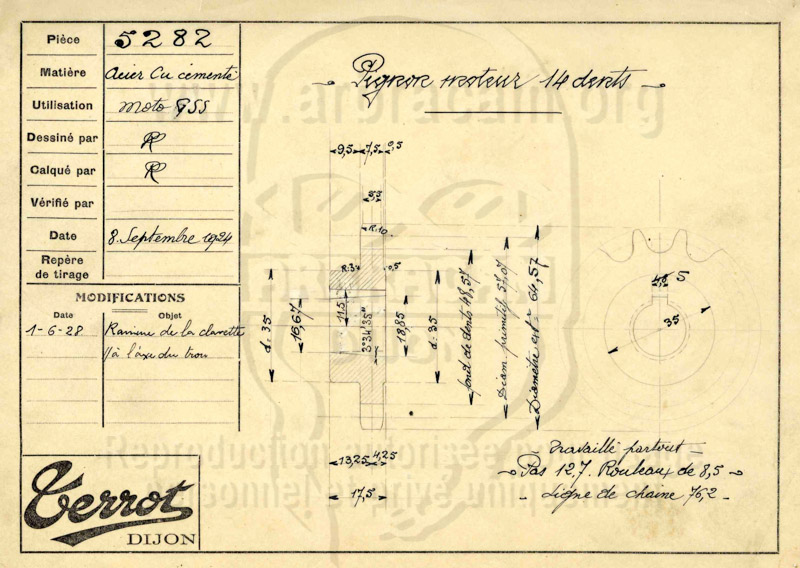 Pièce 5282
Matière Acier Cu cementé
Utilisation Moto GSS
Dessiné par R
Calqué par R
Vérifié par
Date 8. Septembre 1924
Repère
de tirage
MODIFICATIONS
Date Objet
1-6-28 Rainure de la clavette
// à l'axe du trou
Terrot
DIJON
Pignon moteur 14 dents
www.arbracam.org
9,5 7,5 0,5
5,5
R.10
R.3 0,5
d. 35
16,67
11,5
3°34'35"
18,85
d. 35
fond de dents 48,57
Diam primitif 57,07
Diamètre ext. 64,57
4,8 5
35
13,25 4,25
17,5
Travaillé partout
Pas 12,7. Rouleaux de 8,5
Ligne de chaine 76,2
Reproduction autorisée
personnel et privé uniquement